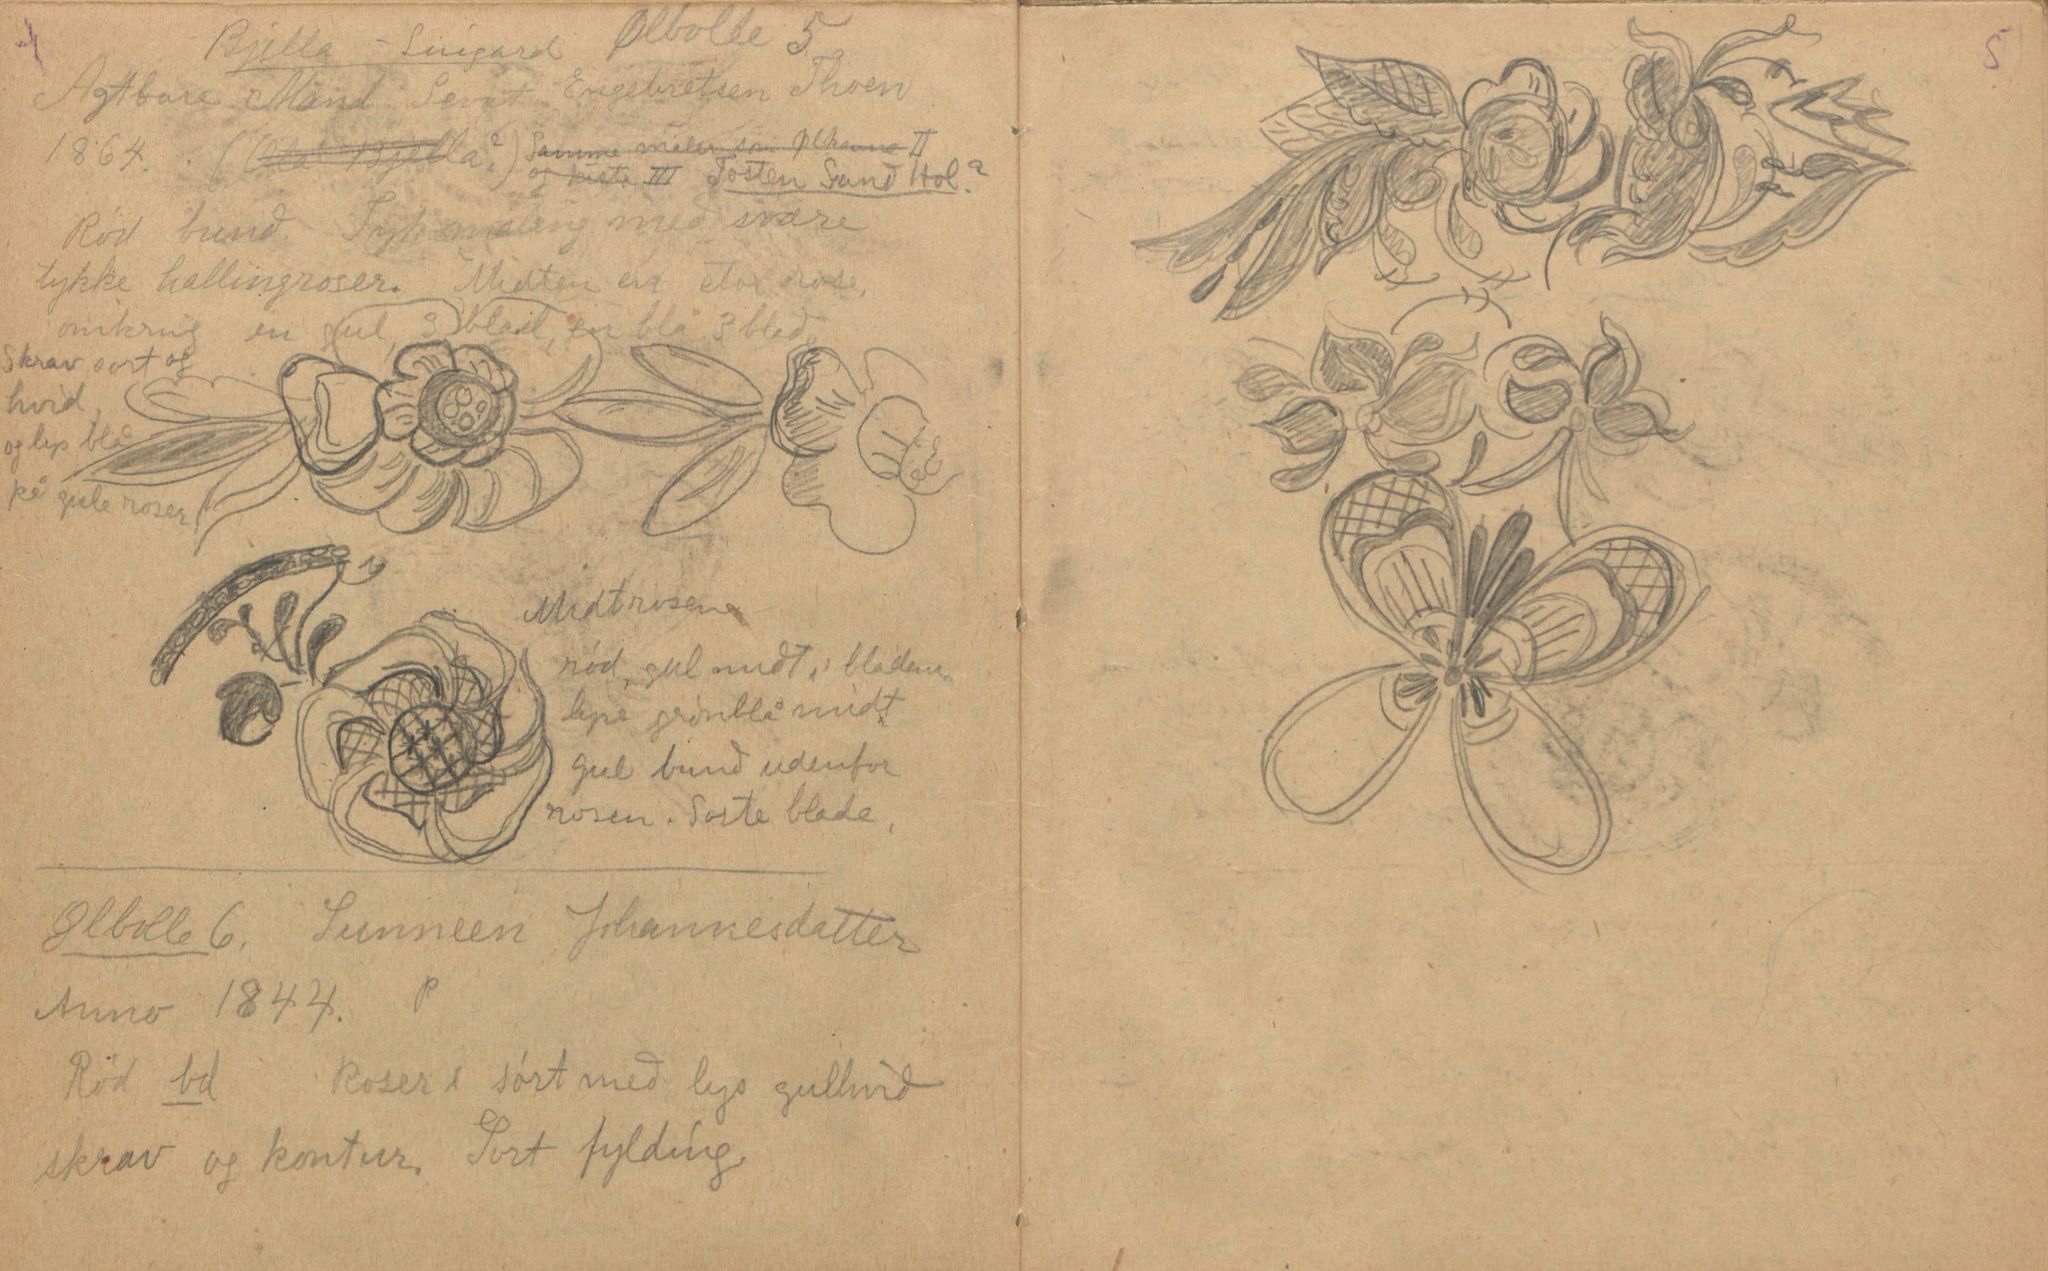 4
Bjella - Ølbolle 5
Agtbare Mand Sevat Engebretsen Thoen
1864. (Ola Bjella?) Samme maler som Ølkanne II
og kiste III Tosten Sand Hol?
Rød bund. Tyk maling med svære
tykke hallingroser. Midten en stor rose,
omkring en gul 3 blad, en blå 3 blad,
Skrav sort og
hvid,
og lys blå
på gule roser
Midtrosen
rød, gul midt, i bladene
lyse grönblå midt.
gul bund udenfor
rosen. Sorte blade.
Ølbolle 6. Sunneen Johannesdatter
Anno 1844. P
Rød bd Roser i sort med lys gulhvid
skrav og kontur. Sort fylding.
5